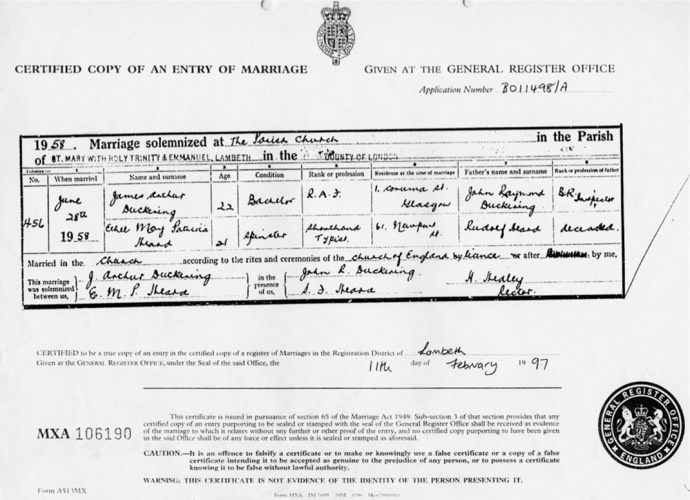 CERTIFIED COPY OF AN ENTRY OF MARRIAGE
GIVEN AT THE GENERAL REGISTER OFFICE
Application Number B011498/A
1958. Marriage solemnized at The Parish Church in the Parish
of ST. MARY WITH HOLY TRINITY & EMMANUEL, LAMBETH in the COUNTY OF LONDON
No. When married Name and surname Age Condition Rank or profession Residence at the time of marriage Father's name and surname Rank or profession of father
456 June 28th 1958
James Arthur Duckering 22 Bachelor R.A.F. Glasgow John Raymond Duckering B.R. Inspector
Ethel May Patricia Heard 21 Spinster Shorthand Typist 61. Newport St. Rudolf Heard deceased.
Married in the Church according to the rites and ceremonies of the Church of England by licence or after by me,
This marriage was solemnized between us, J. Arthur Duckering in the presence of us, John R. Duckering H. Healey
E. M. P. Heard S. J. Heard Rector.
CERTIFIED to be a true copy of an entry in the certified copy of a register of Marriages in the Registration District of Lambeth
Given at the GENERAL REGISTER OFFICE, under the Seal of the said Office, the 11th day of February 1997
MXA 106190
This certificate is issued in pursuance of section 65 of the Marriage Act 1949. Sub-section 3 of that section provides that any
certified copy of an entry purporting to be sealed or stamped with the seal of the General Register Office shall be received as evidence
of the marriage to which it relates without any further or other proof of the entry, and no certified copy purporting to have been given
in the said Office shall be of any force or effect unless it is sealed or stamped as aforesaid.
CAUTION.—It is an offence to falsify a certificate or to make or knowingly use a false certificate or a copy of a false
certificate intending it to be accepted as genuine to the prejudice of any person, or to possess a certificate
knowing it to be false without lawful authority.
WARNING: THIS CERTIFICATE IS NOT EVIDENCE OF THE IDENTITY OF THE PERSON PRESENTING IT.
GENERAL REGISTER OFFICE
ENGLAND
Form A513MX